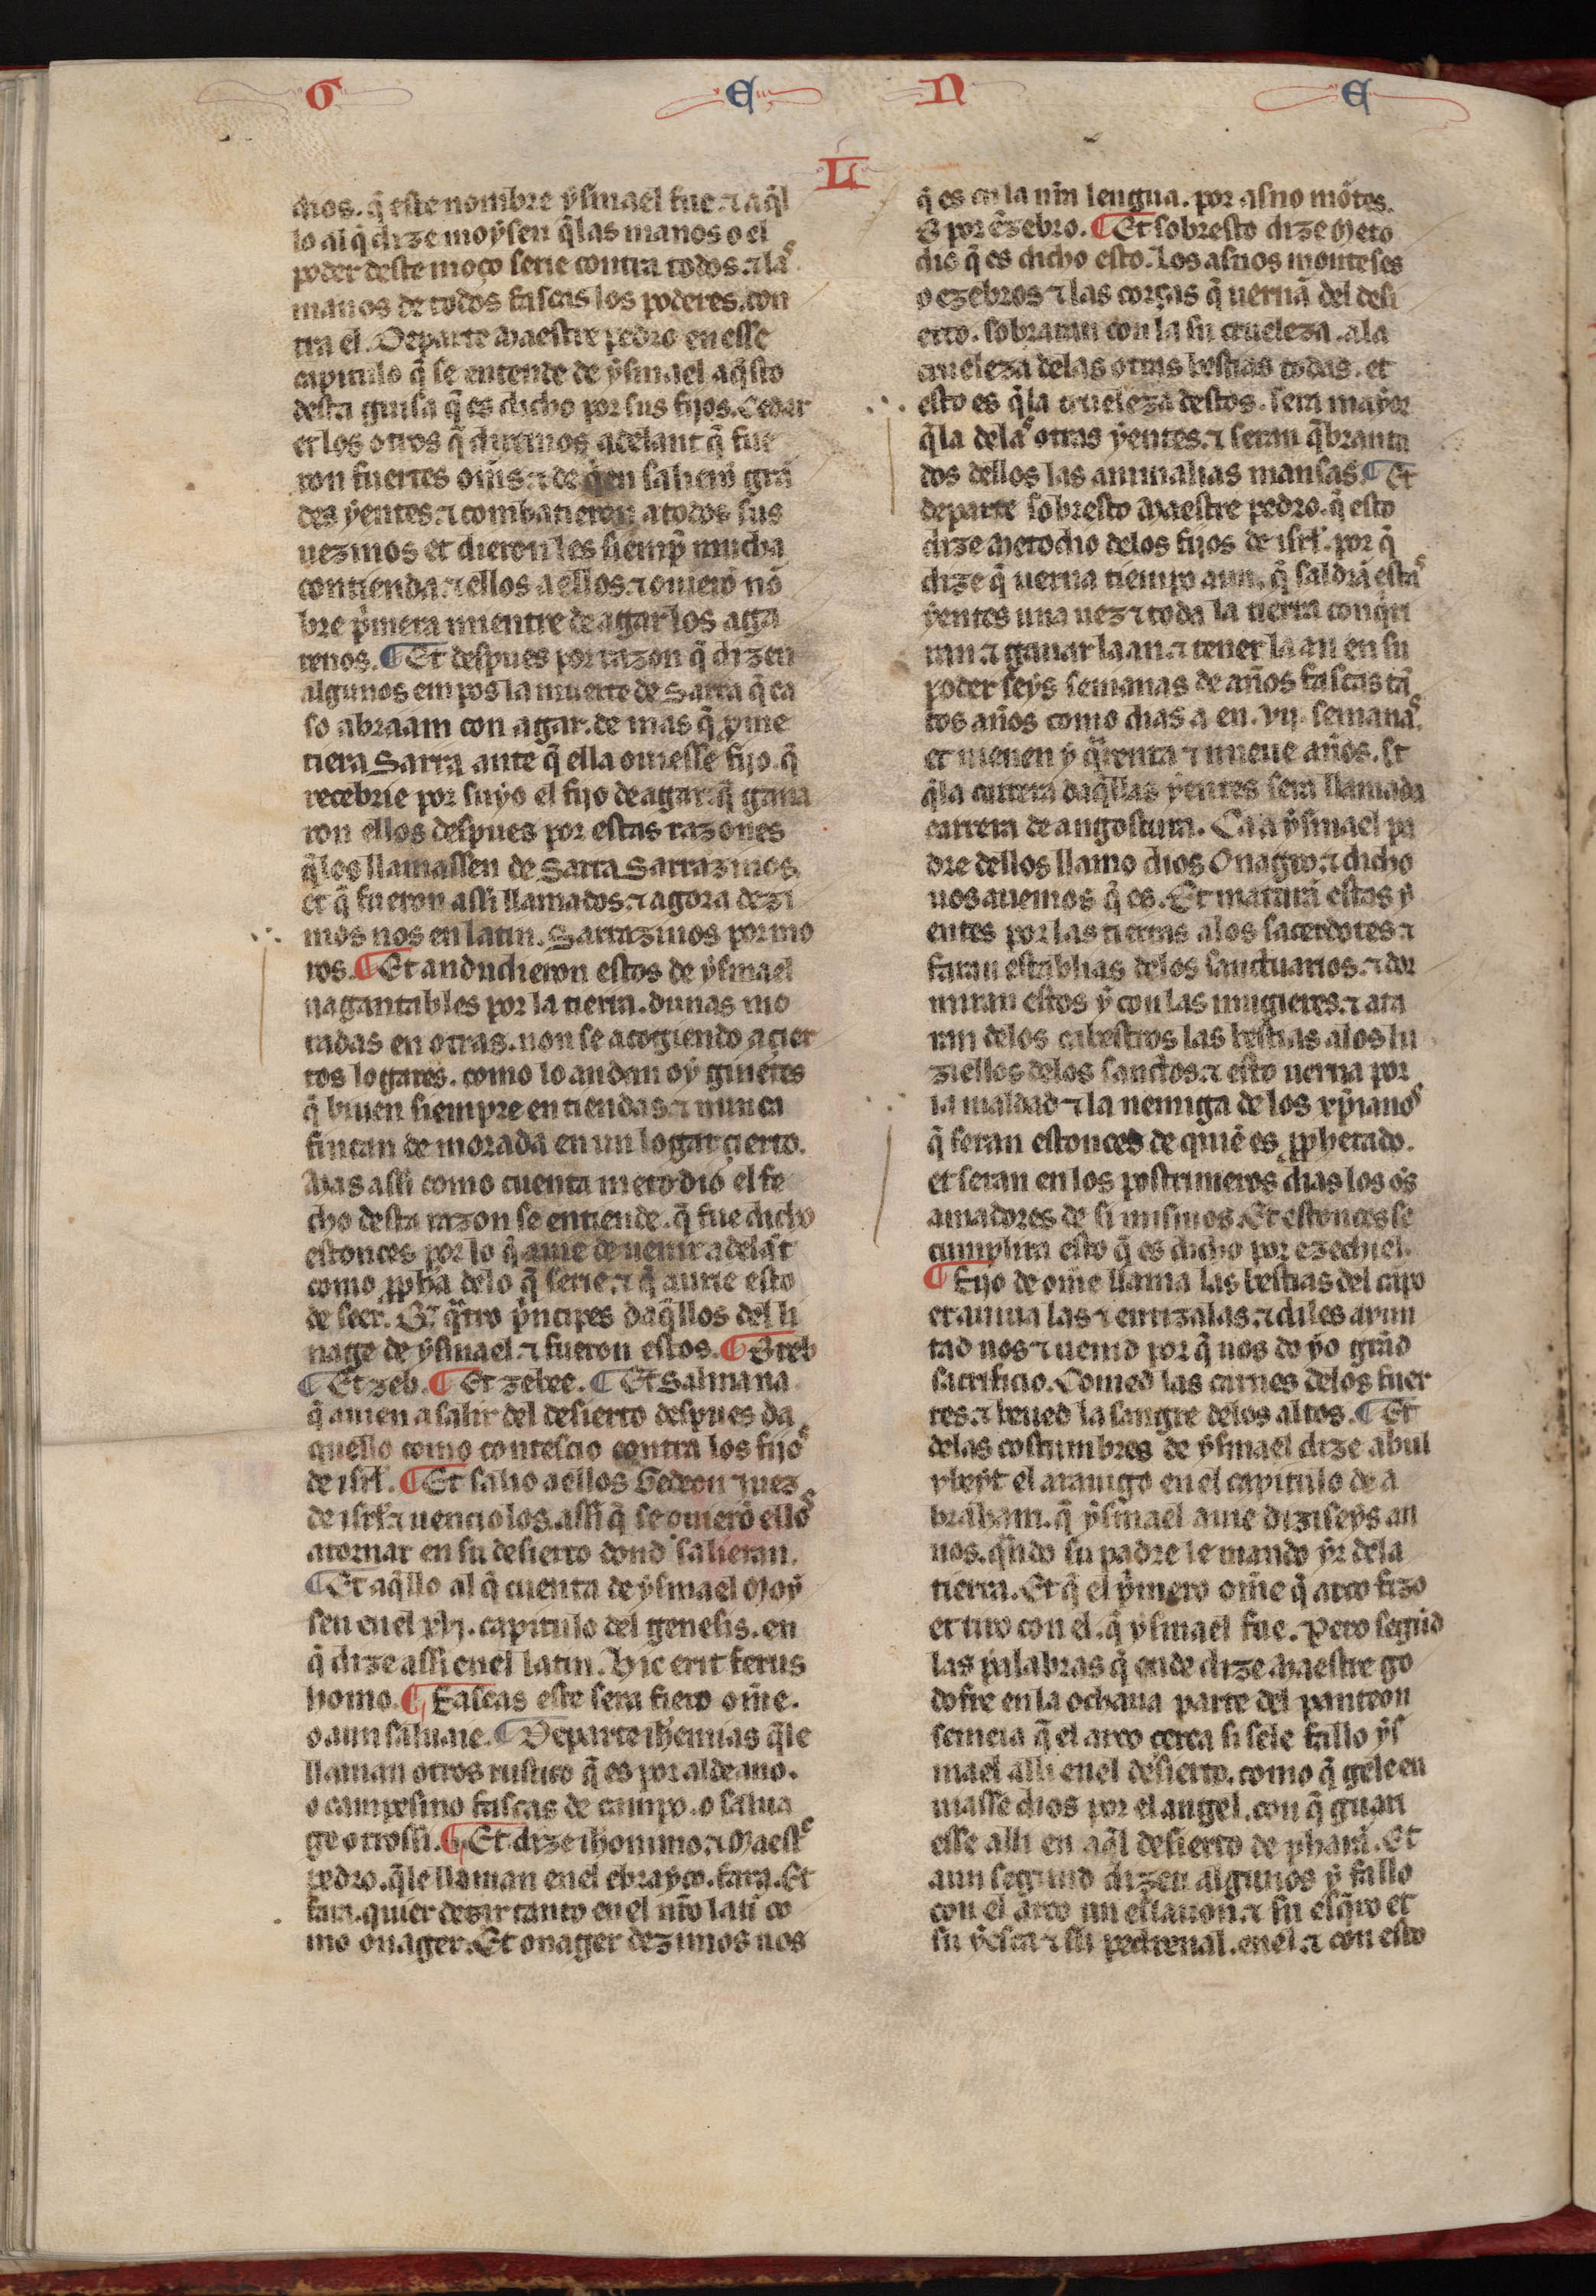 G E N E
L
dios. q̃ este nombre ẏsmael fue. ⁊ aq̃l
lo al q̃ dize moẏsen q̃ las manos o el
poder deste moço serie contra todos. ⁊ las
manos de todos fascas los poderes. con
tra el. Departe maestre pedro en esse
capitulo q̃ se entende de ẏsmael aq̃sto
desta guisa q̃ es dicho por sus fijos. Cedar
et los otros q̃ diremos adelant q̃ fue
ron fuertes om̃s. ⁊ de q̃en salierõ grã
des ẏentes. ⁊ combatieron a todos sus
uezinos et dieron les siemp̃ mucha
contienda. ⁊ ellos a ellos. ⁊ ouierõ nõ
bre p̃mera mientre de agar los aga
renos. ¶ Et despues por razon q̃ dizen
algunos em pos la muerte de Sarra q̃ ca
so abraam con agar. de mas q̃ ꝓme
tiera Sarra ante q̃ ella ouiesse fijo. q̃
recebrie por suẏo el fijo de agar. q̃ gana
ron ellos despues por estas razones
q̃ los llamassen de Sarra Sarrazinos.
et q̃ fueron assi llamados. ⁊ agora dezi
mos nos en latin. Sarrazinos por mo
ros. ¶ Et andudieron estos de ẏsmael
uagantables por la tierra. dunas mo
radas en otras. non se acogiendo a cier
tos logares. como lo andan oẏ ginetes
q̃ biuen siempre en tiendas. ⁊ nunca
fincan de morada en un logar cierto.
Mas assi como cuenta metodio el fe
cho desta razon se entiende. q̃ fue dicho
estonces por lo q̃ auie de uenir adelãt
como ꝓph̃a delo q̃ serie. ⁊ q̃ aurie esto
de seer. q̃tro p̃ncipes daq̃llos del li
nage de ẏsmael. ⁊ fueron estos. ¶ Oreb
¶ Et zeb. ¶ Et zebee. ¶ Et Salmana
q̃ auien a salir del desierto despues da
quello como contescio contra los fijos
de isrl̃. ¶ Et salio a ellos Gedeon juez
de isrl̃. ⁊ uencio los. assi q̃ se ouierõ ellos
a tornar en su desierto dond salieran.
¶ Et aq̃llo al q̃ cuenta de ẏsmael Moẏ
sen en el xvj. capitulo del genesis. en
q̃ dize assi en el latin. Hic erit ferus
homo. ¶ Fascas este sera fiero om̃e.
o aun saluaie. ¶ Departe ih̃emias q̃ le
llaman otros rustico q̃ es por aldeano.
o campesino fascas de campo. o salua
ge otrossi. ¶ Et dize ih̃onimo. ⁊ Maestre
pedro. q̃ le llaman en el ebraẏco. fara. Et
fara. quier dezir tanto en el nr̃o latĩ co
mo onager. Et onager dezimos nos
q̃ es en la nr̃a lengua. por asno mõtes.
O por ẽzebro. ¶ Et sobresto dize Meto
dio q̃ es dicho esto. Los asnos monteses
o ezebros ⁊ las corças q̃ uernã del desi
erto. sobraran con la su crueleza. a la
crueleza delas otras bestias todas. et
esto es q̃ la crueleza destos. sera maẏor
q̃ la delas otras ẏentes. ⁊ seran q̃branta
dos dellos las animalias mansas. ¶ Et
departe sobresto Maestre pedro. q̃ esto
dize Metodio delos fijos de isrl̃. por q̃
dize q̃ uerna tiempo aun. q̃ saldrã estas
ẏentes una uez ⁊ toda la tierra conq̃ri
ran. ⁊ ganar la an. ⁊ tener la an en su
poder seẏs semanas de años fascas tã
tos años como dias a en. vij. semanas.
et uienen ẏ q̃renta ⁊ nueue años. Et
q̃ la carrera daq̃llas ẏentes sera llamada
carrera de angostura. Ca a ẏsmael pa
dre dellos llamo dios Onagro. ⁊ dicho
uos auemos q̃ es. Et mataran estas ẏ
entes por las tierras a los sacerdotes. ⁊
faran establias delos sanctuarios. ⁊ dor
miran estos ẏ con las mugieres. ⁊ ata
ran delos cabestros las bestias alos lu
ziellos delos sanctos. ⁊ esto uerna por
la maldad ⁊ la nemiga de los xp̃ianos
q̃ seran estonces de quiẽ es ꝓphetado.
et seran en los postrimeros dias los om̃s
amadores de si mismos. Et estonces se
cumplira esto q̃ es dicho por ezechiel.
¶ Fijo de om̃e llama las bestias del cãpo
et aiuna las ⁊ entizalas. ⁊ diles aiun
tad uos ⁊ uenid por q̃ uos do ẏo grãd
sacrificio. Comed las carnes delos fuer
tes. ⁊ beued la sangre delos altos. ¶ Et
delas costumbres de ẏsmael dize abul
ybeẏt el arauigo en el capitulo de a
braham. q̃ ẏsmael auie diziseẏs an
nos. q̃ndo su padre le mando ẏr dela
tierra. Et q̃ el p̃mero om̃e q̃ arco fizo
et tiro con el. q̃ ẏsmael fue. Pero segũd
las palabras q̃ ende dize Maestre go
dofre en la ochaua parte del panteon
semeia q̃ el arco cerca si sele fallo ẏs
mael alli en el desierto. como q̃ gele en
uiasse dios por el angel. con q̃ guari
esse alli en aq̃l desierto de pharã. Et
aun segund dizen algunos ẏ fallo
con el arco un eslauon. ⁊ su esq̃ro et
su ẏesca ⁊ su pedrenal. en el. ⁊ con esto